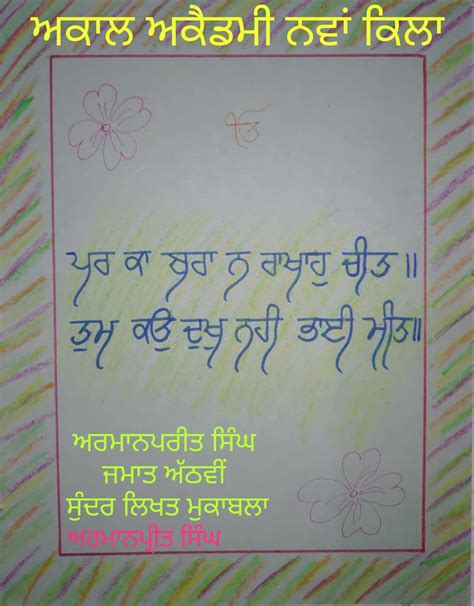 ਅਕਾਲ ਅਕੈਡਮੀ ਨਵਾਂ ਕਿਲਾ
ੴ
ਪਰ ਕਾ ਬੁਰਾ ਨ ਰਾਖਾਹੁ ਚੀਤ ॥
ਤੁਮ ਕਉ ਦੁਖੁ ਨਹੀ ਭਾਈ ਮੀਤ॥
ਅਰਮਾਨਪਰੀਤ ਸਿੰਘ
ਜਮਾਤ ਅੱਠਵੀਂ
ਸੁੰਦਰ ਲਿਖਤ ਮੁਕਾਬਲਾ
ਅਰਮਾਨਪ੍ਰੀਤ ਸਿੰਘ